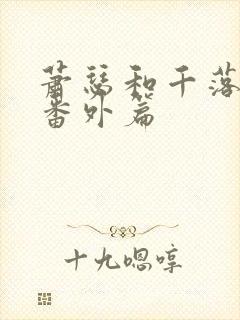 萧瑟和千落
番外篇
十九嗯哼